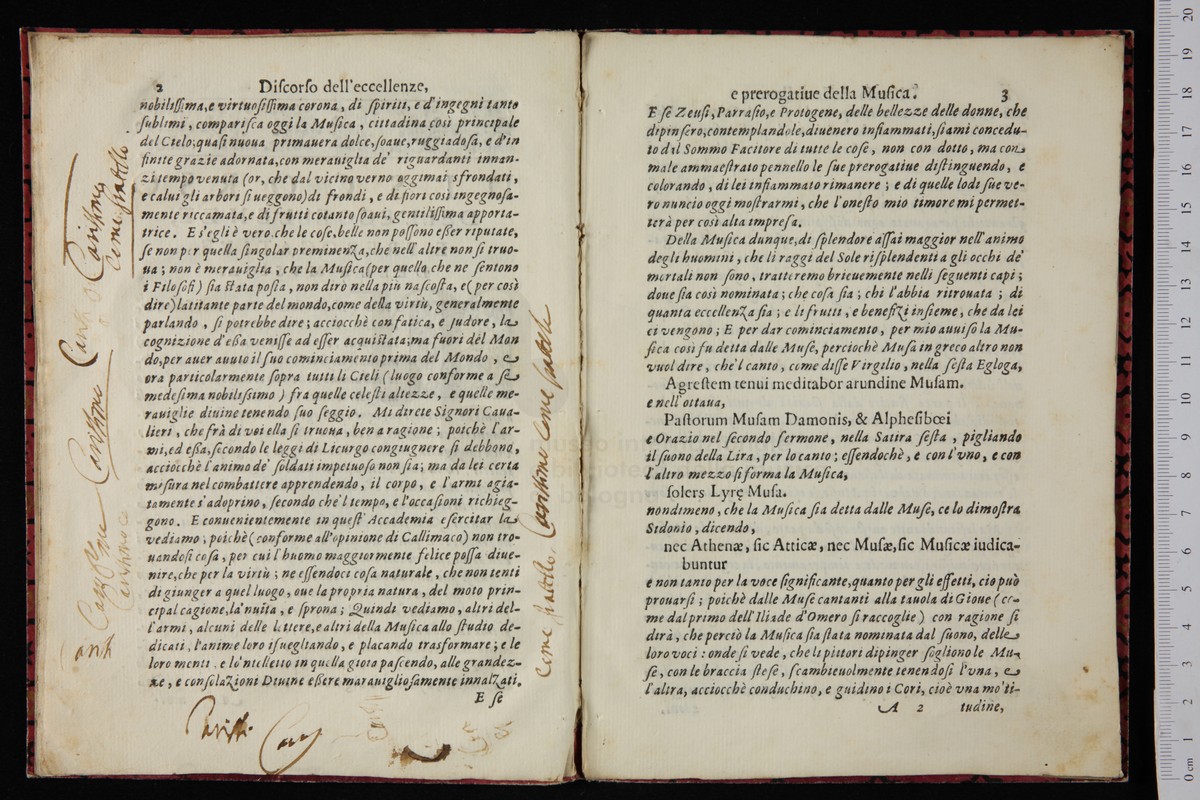 2 Diſcorſo dell'eccellenze,
nobiliſſima,e virtuoſiſſima corona, di ſpiriti, e d'ingegni tanto
ſublimi, compariſca oggi la Muſica, cittadina così principale
del Cielo;quaſi nuoua primauera dolce,ſoaue,ruggiadoſa, e d'in
finite grazie adornata,con merauiglia de' riguardanti innan-
zi tempo venuta (or, che dal vicino verno oggimai sfrondati,
e calui gli arbori ſi ueggono) di frondi, e di fiori così ingegnoſa-
mente riccamata,e di frutti cotanto ſoaui, gentiliſſima apporta-
trice. E s'egli è vero,che le coſe,belle non poſſono eßer riputate,
ſe non per quella ſingolar preminenza,che nell'altre non ſi truo-
ua; non è merauiglia, che la Muſica(per quello,che ne ſentono
i Filoſofi) ſia ſtata poſta, non dirò nella più naſcoſta, e(per così
dire)latitante parte del mondo,come della virtù, generalmente
parlando, ſi potrebbe dire; acciocchè con fatica, e ſudore, la
cognizione d'eßa veniſſe ad eſſer acquiſtata;ma fuori del Mon
do,per auer auuto il ſuo cominciamento prima del Mondo, e
ora particolarmente ſopra tutti li Cieli (luogo conforme a ſe
medeſima nobiliſsimo) fra quelle celeſti altezze, e quelle me-
rauiglie diuine tenendo ſuo ſeggio. Mi direte Signori Caua-
lieri, che frà di voi ella ſi truoua, ben a ragione; poichè l'ar-
mi,ed eßa,ſecondo le leggi di Licurgo congiugnere ſi debbono,
acciocchè l'animo de' ſoldati impetuoſo non ſia; ma da lei certa
miſura nel combattere apprendendo, il corpo, e l'armi agia-
tamente s'adoprino, ſecondo che'l tempo, e l'occaſioni richieg-
gono. E conuenientemente in queſt'Accademia eſercitar la
vediamo; poichè(conforme all'opinione di Callimaco) non tro-
uandoſi coſa, per cui l'huomo maggiormente felice poſſa diue-
nire,che per la virtù; ne eſſendoci coſa naturale, che non tenti
di giunger a quel luogo, oue la propria natura, del moto prin-
cipal cagione,la'nuita, e ſprona; Quindi vediamo, altri del-
l'armi, alcuni delle lettere,e altri della Muſica allo ſtudio de-
dicati, l'anime loro iſuegliando, e placando traſformare; e le
loro menti, e lo'ntelletto in quella gioia paſcendo, alle grandez-
ze, e conſolazioni Diuine eßere marauiglioſamente innalzati.
E ſe
come fratello
e prerogatiue della Muſica. 3
E ſe Zeuſi,Parraſio,e Protogene, delle bellezze delle donne, che
dipinſero,contemplandole,diuenero infiammati,ſiami concedu-
to dal Sommo Facitore di tutte le coſe, non con dotto, ma con
male ammaeſtrato pennello le ſue prerogatiue diſtinguendo, e
colorando, di lei infiammato rimanere; e di quelle lodi ſue ve-
ro nuncio oggi moſtrarmi, che l'oneſto mio timore mi permet-
terà per così alta impreſa.
Della Muſica dunque,di ſplendore aſſai maggior nell'animo
degli huomini, che li raggi del Sole riſplendenti a gli occhi de'
mortali non ſono, tratteremo brieuemente nelli ſeguenti capi;
doue ſia così nominata; che coſa ſia; chi l'abbia ritrouata; di
quanta eccellenza ſia; e li frutti, e benefizi inſieme, che da lei
ci vengono; E per dar cominciamento, per mio auuiſo la Mu-
ſica così fu detta dalle Muſe, perciochè Muſa in greco altro non
vuol dire, chè'l canto, come diſſe Virgilio, nella ſeſta Egloga,
Agreſtem tenui meditabor arundine Muſam.
e nell'ottaua,
Paſtorum Muſam Damonis, & Alpheſibœi
e Orazio nel ſecondo ſermone, nella Satira ſeſta, pigliando
il ſuono della Lira, per lo canto; eſſendochè, e con l'vno, e con
l'altro mezzo ſi forma la Muſica,
ſolers Lyrę Muſa.
nondimeno, che la Muſica ſia detta dalle Muſe, ce lo dimoſtra
Sidonio, dicendo,
nec Athenæ, ſic Atticæ, nec Muſæ,ſic Muſicæ iudica-
buntur
e non tanto per la voce ſignificante,quanto per gli effetti, ciò può
prouarſi; poichè dalle Muſe cantanti alla tauola di Gioue (co-
me dal primo dell'Iliade d'Omero ſi raccoglie) con ragione ſi
dirà, che perciò la Muſica ſia ſtata nominata dal ſuono, delle
loro voci: onde ſi vede, che li pittori dipinger ſogliono le Mu-
ſe, con le braccia ſteſe, ſcambieuolmente tenendoſi l'vna, e
l'altra, acciocchè conduchino, e guidino i Cori, cioè vna mo'ti-
A 2 tudine,